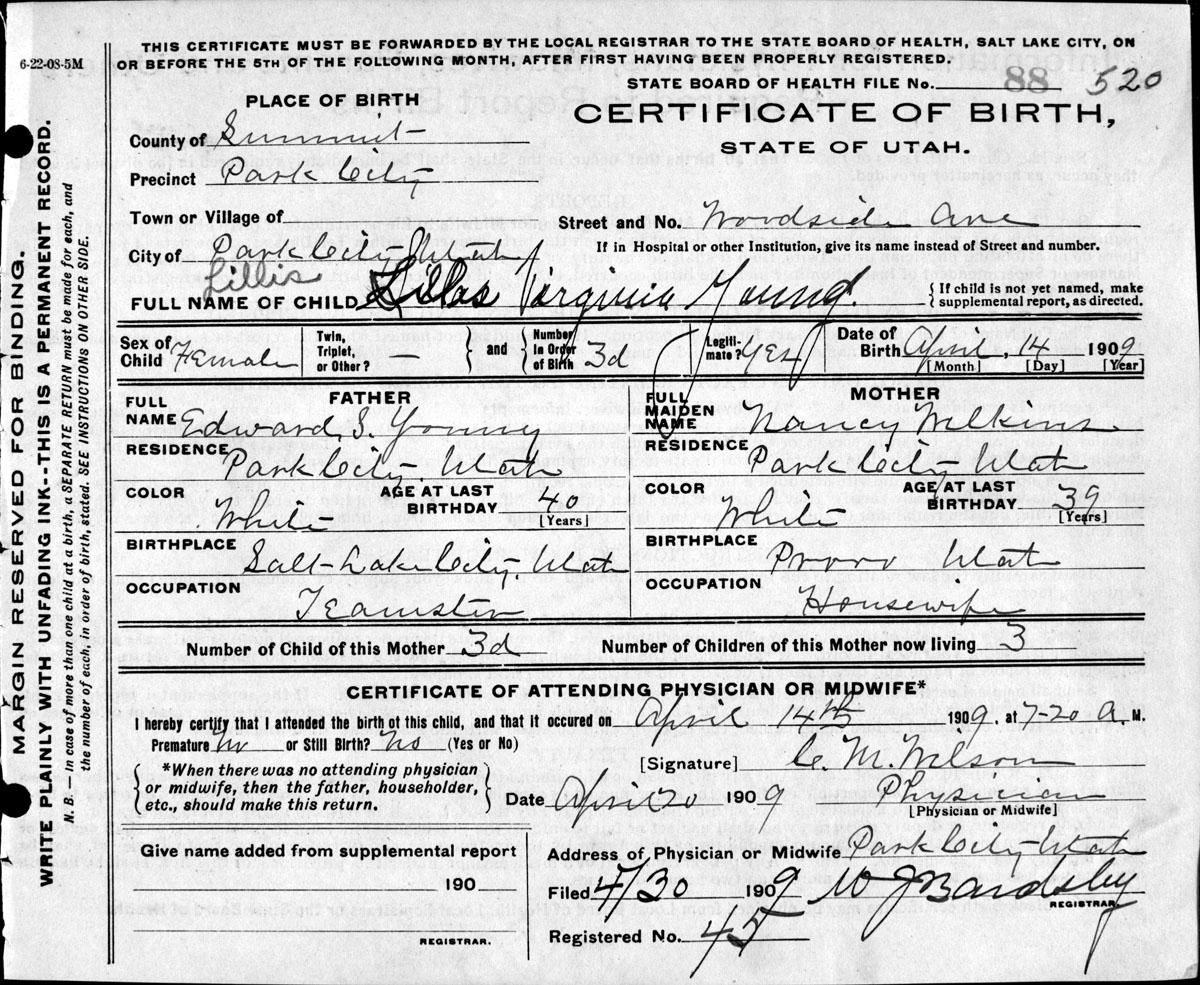 THIS CERTIFICATE MUST BE FORWARDED BY THE LOCAL REGISTRAR TO THE STATE BOARD OF HEALTH, SALT LAKE CITY, ON
OR BEFORE THE 5TH OF THE FOLLOWING MONTH, AFTER FIRST HAVING BEEN PROPERLY REGISTERED.
6-22-08-5M
STATE BOARD OF HEALTH FILE No. 88 520
PLACE OF BIRTH
CERTIFICATE OF BIRTH,
STATE OF UTAH.
County of Summit
Precinct Park City
Town or Village of
Street and No. Woodside Ave
City of Park City Utah
If in Hospital or other Institution, give its name instead of Street and number.
Lillis
FULL NAME OF CHILD Lillas Virginia Young.
{ If child is not yet named, make supplemental report, as directed.
Sex of Child Female
Twin, Triplet, or Other? —
} and {
Number in Order of Birth 3d
Legitimate? Yes
Date of Birth April, 14 1909
[Month] [Day] [Year]
FATHER
FULL NAME Edward S. Young
RESIDENCE Park City Utah
COLOR White
AGE AT LAST BIRTHDAY 40 [Years]
BIRTHPLACE Salt Lake City, Utah
OCCUPATION Teamster
MOTHER
FULL MAIDEN NAME Nancy Wilkins
RESIDENCE Park City Utah
COLOR White
AGE AT LAST BIRTHDAY 39 [Years]
BIRTHPLACE Provo Utah
OCCUPATION Housewife
Number of Child of this Mother 3d Number of Children of this Mother now living 3
CERTIFICATE OF ATTENDING PHYSICIAN OR MIDWIFE*
I hereby certify that I attended the birth of this child, and that it occured on April 14th 1909. at 7-20 A. M.
Premature No or Still Birth? No (Yes or No)
[Signature] C. M. Wilson
{ *When there was no attending physician or midwife, then the father, householder, etc., should make this return. }
Date April 20 1909 Physician
[Physician or Midwife]
Give name added from supplemental report
190
REGISTRAR.
Address of Physician or Midwife Park City Utah
Filed 4/30 1909 W J Bardsley
REGISTRAR.
Registered No. 45
MARGIN RESERVED FOR BINDING.
WRITE PLAINLY WITH UNFADING INK--THIS IS A PERMANENT RECORD.
N. B. In case of more than one child at a birth, a SEPARATE RETURN must be made for each, and
the number of each, in order of birth, stated. SEE INSTRUCTIONS ON OTHER SIDE.